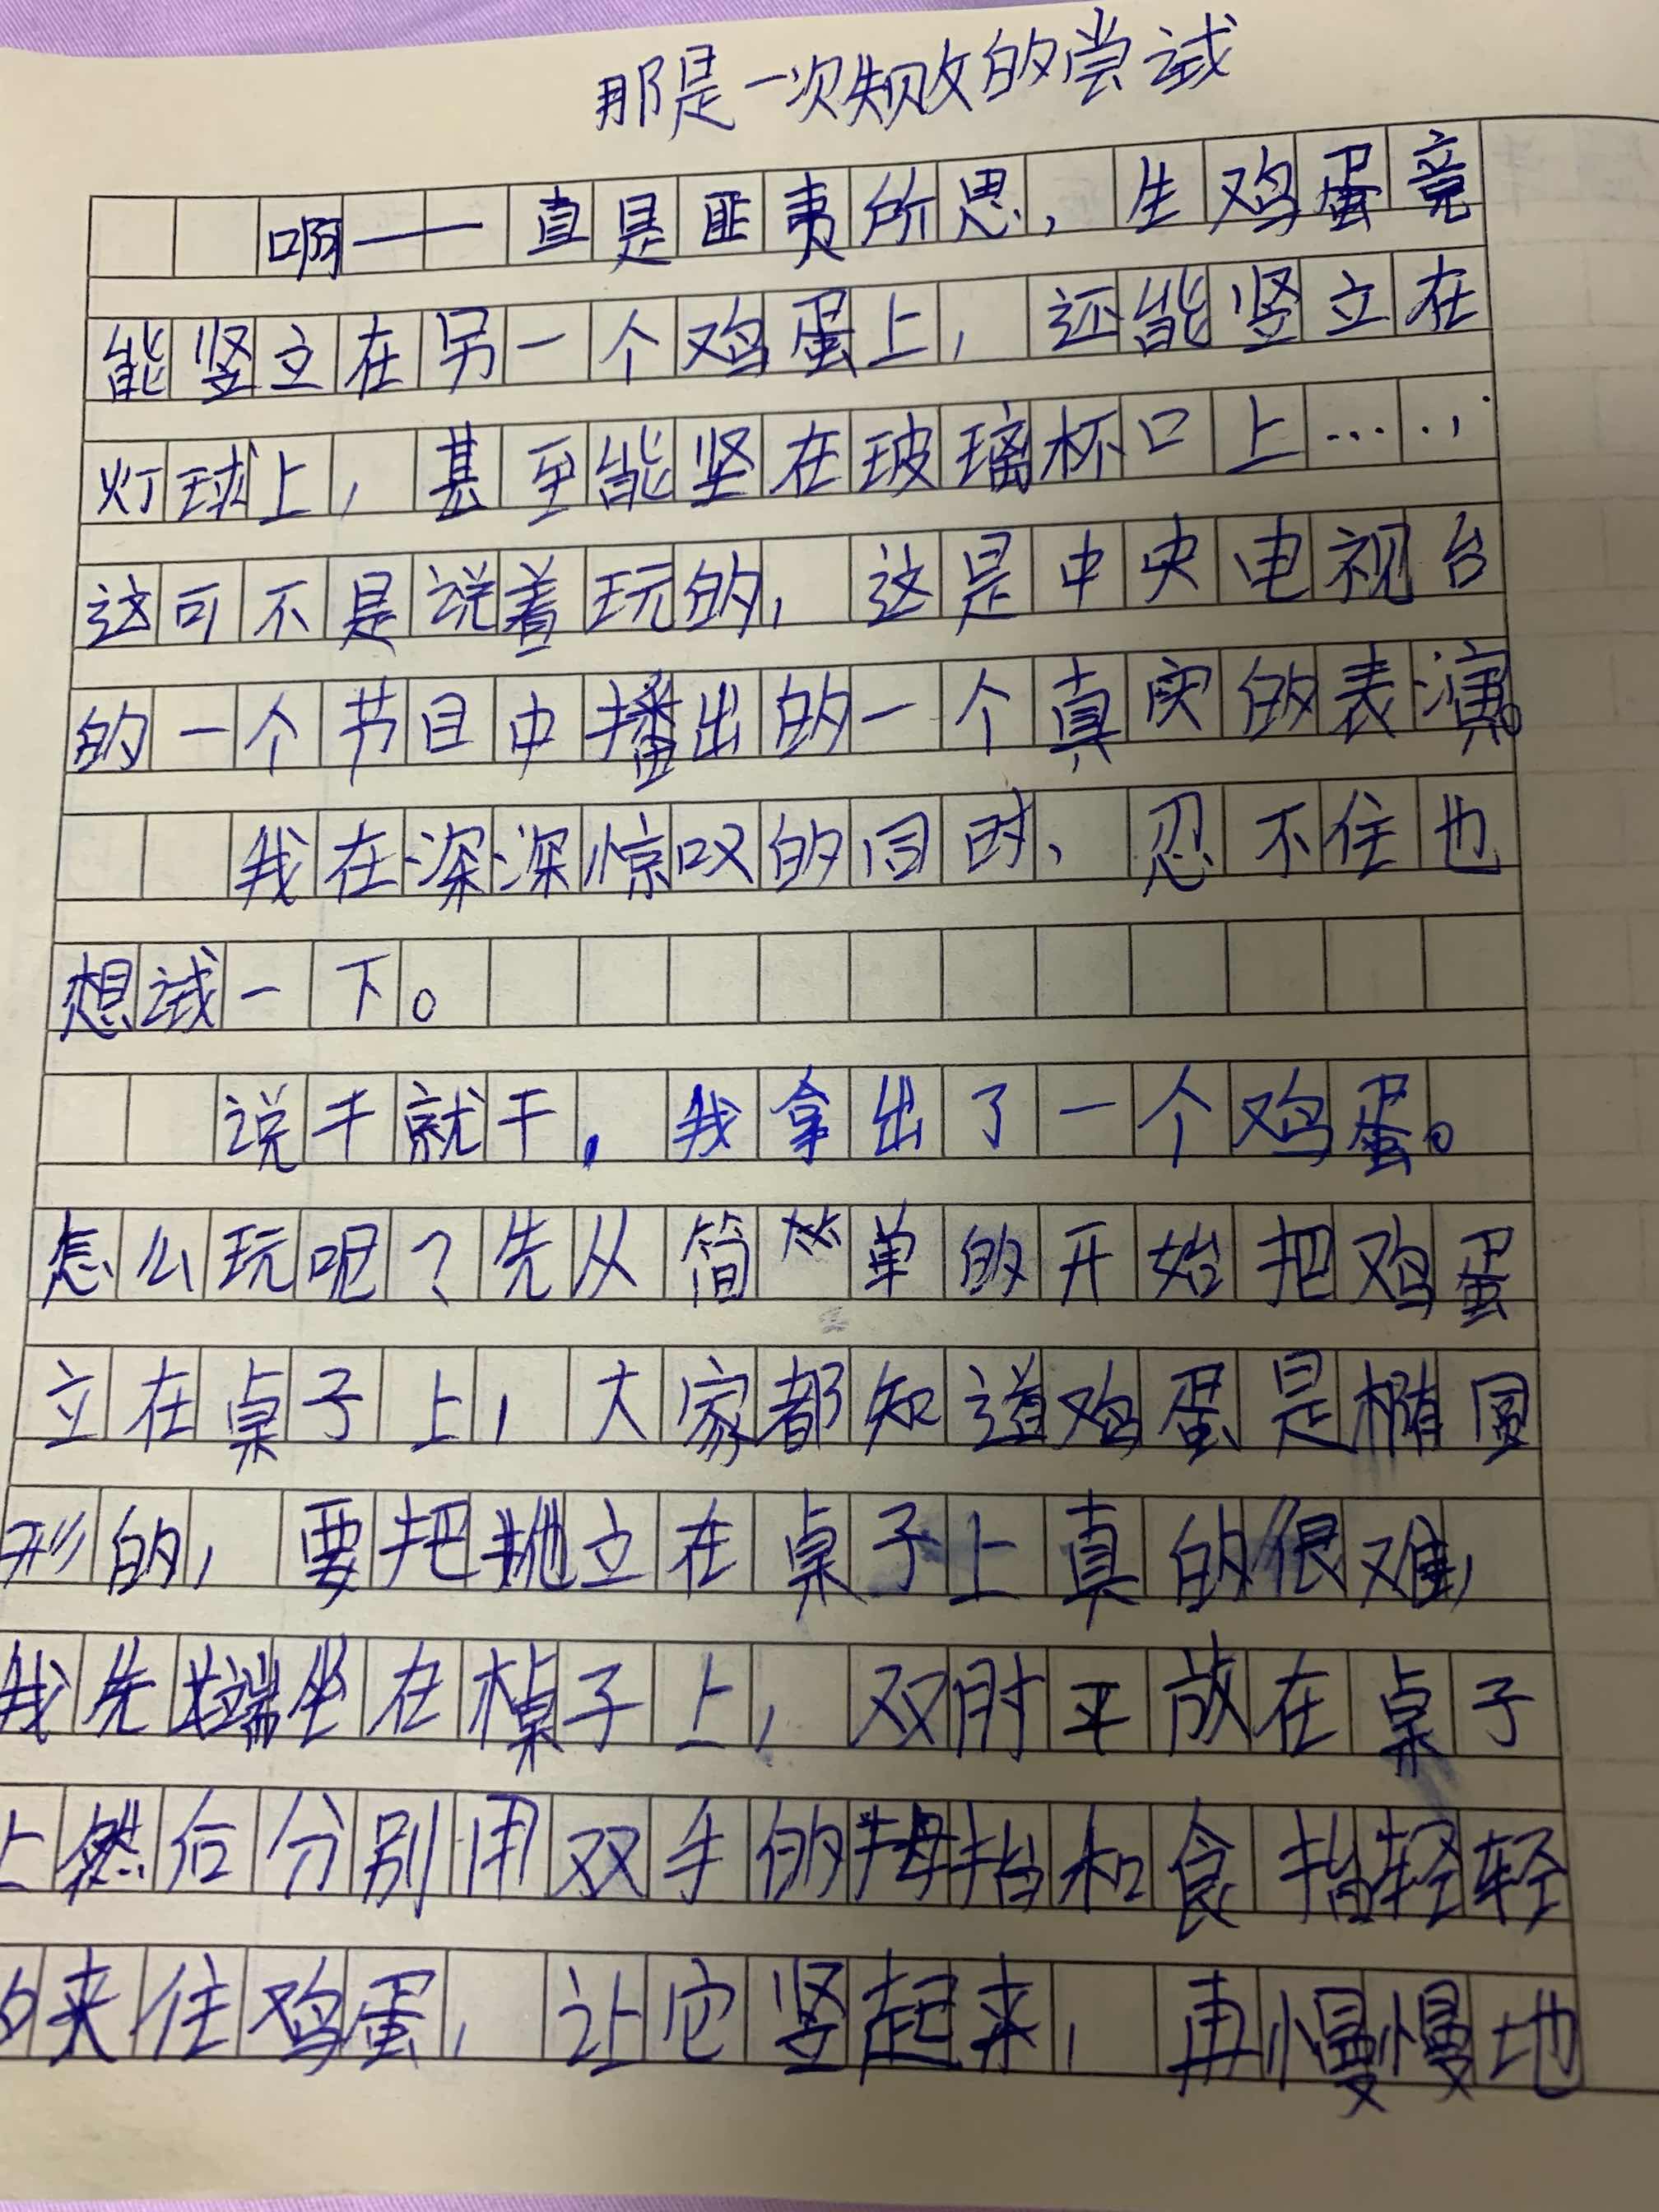 那是一次失败的尝试
啊——直是匪夷所思，生鸡蛋竟
能竖立在另一个鸡蛋上，还能竖立在
灯球上，甚至能坚在玻璃杯口上……，
这可不是说着玩的，这是中央电视台
的一个节目中播出的一个真实的表演。
我在深深惊叹的同时、忍不住也
想试一下。
说干就干，我拿出了一个鸡蛋。
怎么玩呢？先从简单的开始把鸡蛋
立在桌子上，大家都知道鸡蛋是椭圆
形的，要把立在桌子上真的很难，
我先端坐在桌子上，双肘平放在桌子
上然后分别用双手的拇指和食指轻轻
的夹住鸡蛋，让它竖起来，再慢慢地